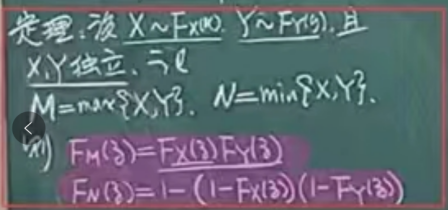 定理:设 X~Fx(x). Y~FY(y),且
X,Y独立,记
M=max{X,Y}. N=min{X,Y}.
则 FM(z)=FX(z)FY(z)
FN(z)=1-(1-FX(z))(1-FY(z))